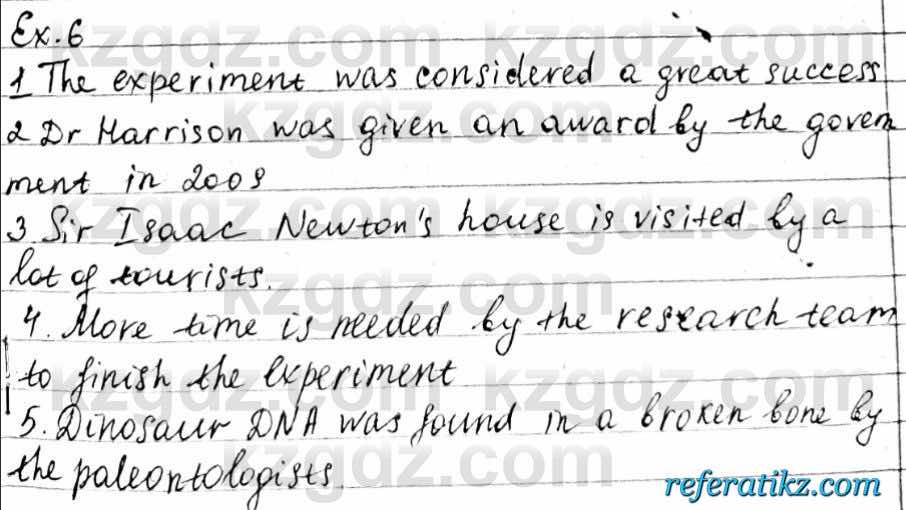 Ex. 6
1 The experiment was considered a great success
2 Dr Harrison was given an award by the govern
ment in 2009
3 Sir Isaac Newton's house is visited by a
lot of tourists.
4. More time is needed by the research team
to finish the experiment
5. Dinosaur DNA was found in a broken bone by
the paleontologists
kzgdz.com
referatikz.com